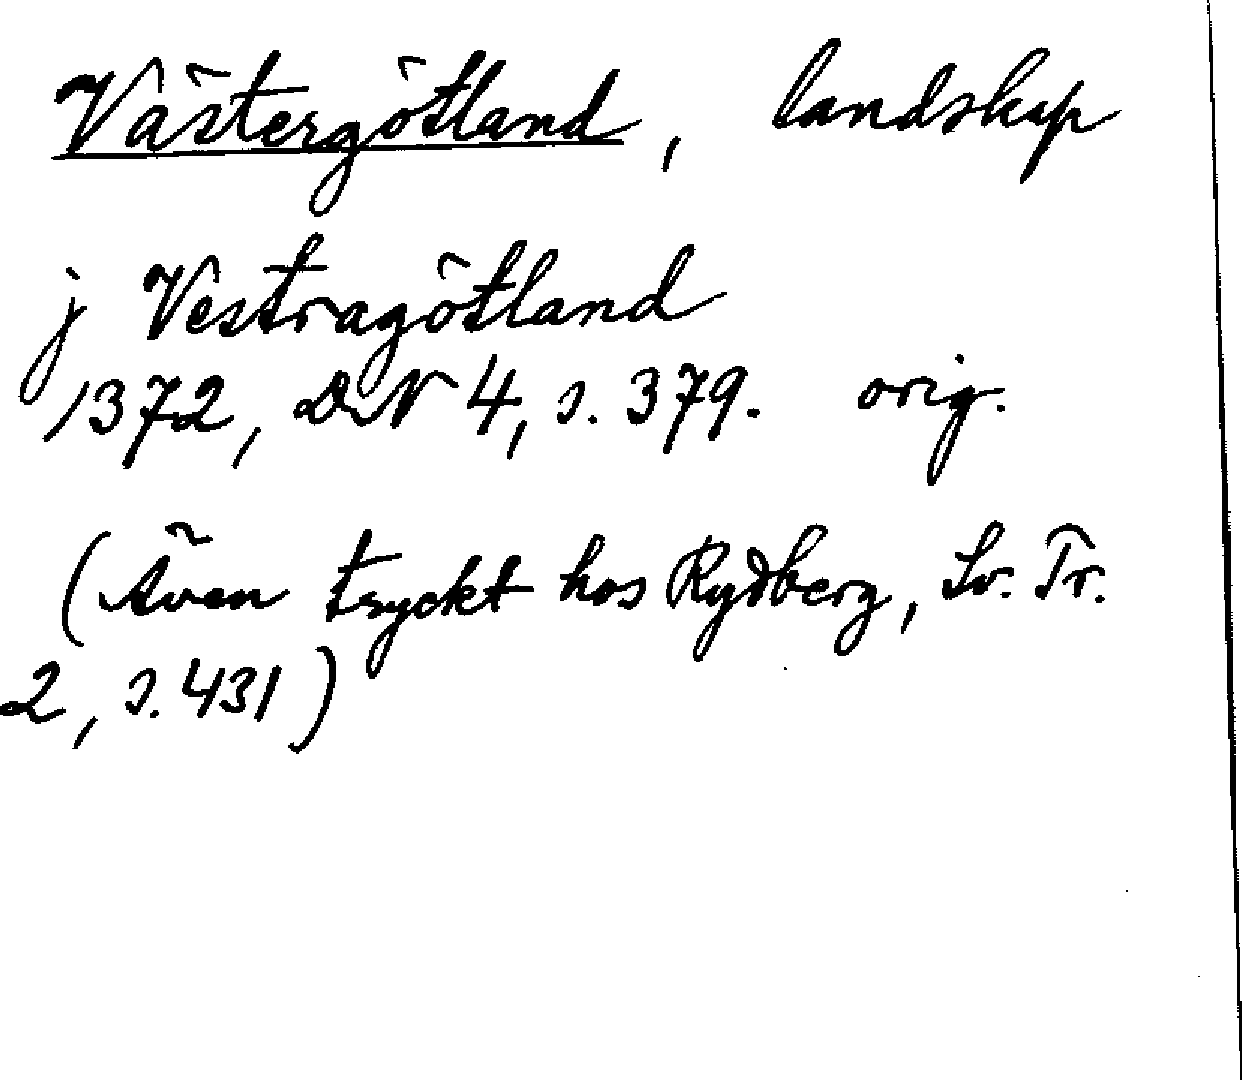 Västergötland, landskap
j Vestragötland
1372, DN 4, s. 379. orig.
(Även tryckt hos Rydberg, Sv. Tr.
2, s. 431)